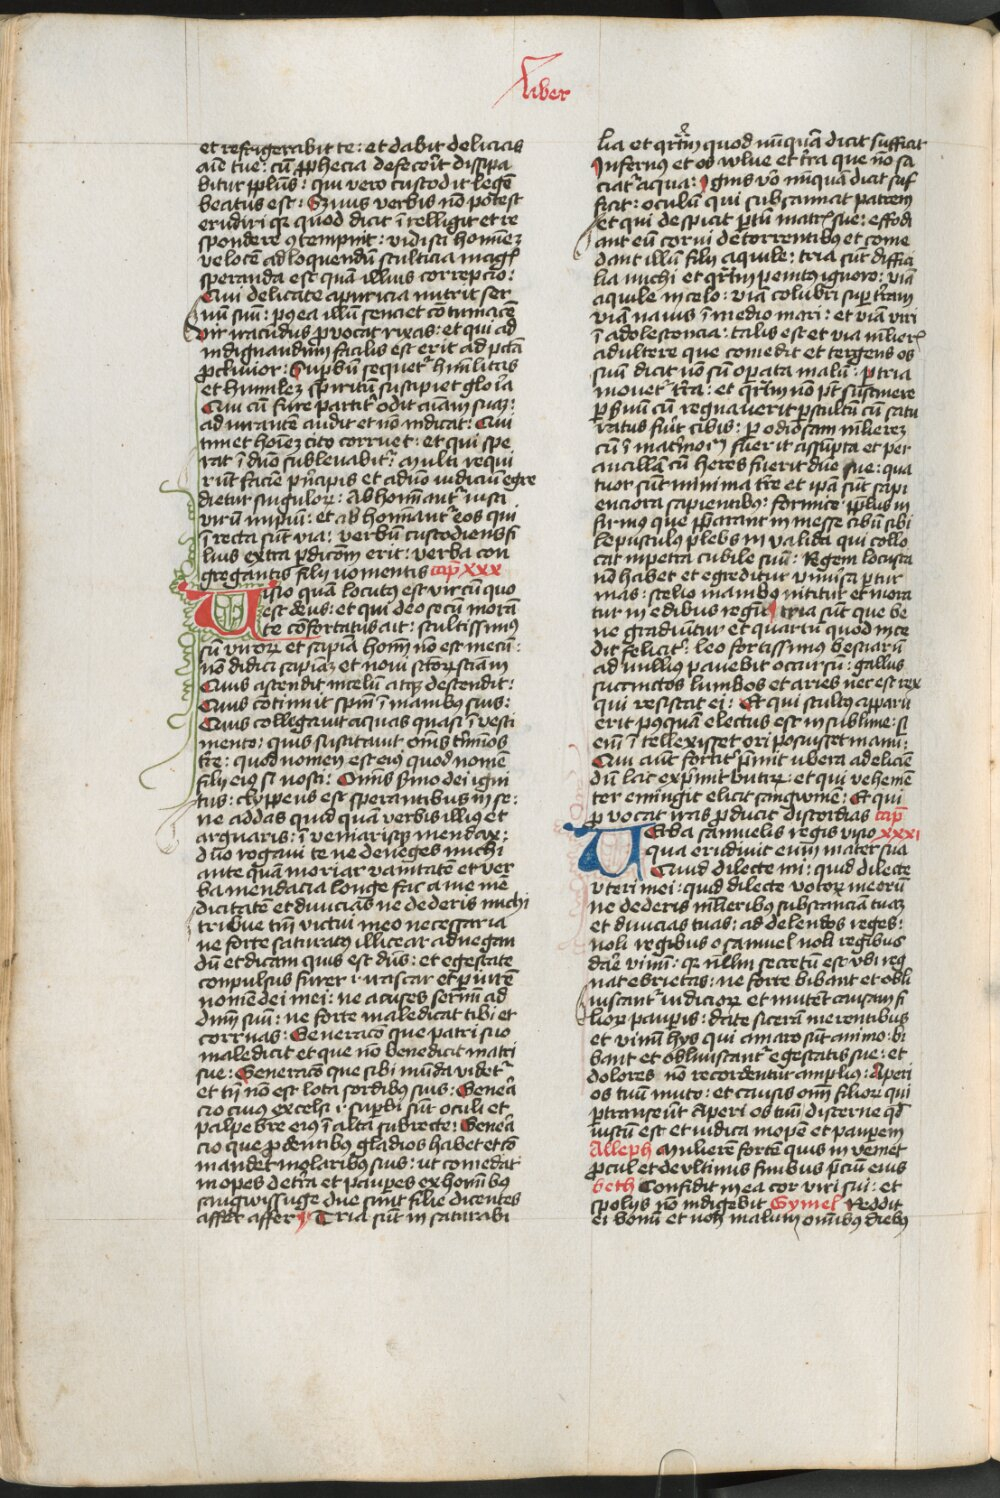 Liber
et refrigerabit te : et dabit delicias
aīe tue : cū ꝓphecia defecerīt dissipa
bitur ppl̄us : qui vero custodit legē
beatus est : Seruus verbis nō potest
erudiri qꝛ quod dicit ītelligit et re
spondere ꝯtempnit : vidisti hominez
velocē ad loquendū stulticia magꝭ
speranda est quā illius correpcio :
Qui delicate a puericia nutrit ser
uū suū : postea illū senciet cōtumacē
vir iracundus ꝓvocat rixas : et qui ad
indignandum facilis est erit ad pctā
ꝓclinior : Supbū sequetur humilitas
et humilez spiritum suscipiet gloria
Qui cū fure partitur odit aīam suaꝫ :
adiurantem audit et nō indicat : Qui
timet hoīez cito corruet : et qui spe
rat ī dn̄o subleuabitur : Multi requi
rūt faciē principis et a dn̄o iudiciū egre
dietur singuloꝝ : Abhominantur iusti
virū impiū : et abhominantur eos qui
ī recta sūt via : verbū custodiens fi
lius extra ꝑdicōem erit : verba con
gregantis filij vomentis cap̄ xxx
Uisio quā locutus est vir cū quo
est deus : et qui deo secū morā
te cōfortatus ait : stultissimus
sū viroꝝ et sapīa homin̄ nō est mecū :
nō didici sapīaꝫ et noui sctōrꝝ sciam
Quis ascendit in celū atqꝫ descendit :
Quis cōtinuit spm̄ ī manibus suis :
Quis colligauit aquas quasi ī vesti
mento : quis suscitauit om̄s tr̄minos
tr̄e : quod nomen est eius quod nomē
filij eius si nosti : Omnis sermo dei igni
tus : clyppeus est sperantibus in se :
ne addas quid quā verbis illius et
arguaris : ī veniarisqꝫ mendax :
duo rogaui te ne deneges michi
ante quā moriar vanitatē et ver
ba mendacia longe fac a me me
dicitatē et diuicias ne dederis michi
tribue tm̄ victui meo necessaria
ne forte saturatus illicear ad negan
dū et dicam quis est dn̄s : et egestate
compulsus furer ⁊ irascar et ꝑiurē
nomē dei mei : ne acuses seruū ad
dnm̄ suū : ne forte maledicat tibi et
corruas : Generacō que patri suo
maledicit et que nō benedicit matri
sue : Generacō que sibi mūda videtur
et tn̄ nō est lota sordibus suis : Genera
cio cuius excelsi ⁊ supbi sūt oculi et
palpebre eius ī alta subrecte : Genera
cio que ꝓ dentibus gladios habet et cō
mandet molaribus suis : ut comedat
inopes de tr̄a et pauꝑes ex homībus
sangwissuge due sunt filie dicentes
affer affer : Tria sūt in saturabi
lia et qrtm̄ quod nūquā dicit sufficit
Infernus et os vulue et tr̄a que nō sa
ciatur aqua : ignis vō nūquā dicit suf
ficit : oculū qui subsannat patrem
et qui despicit partū matrꝭ sue : effodi
ant eū corui de torrentibus et come
dant illū filij aquile : tria sūt diffici
lia michi et qrtm̄ penitus ignoro : viā
aquile in celo : viā colubri super tr̄am
viam nauis ī medio mari : et viā viri
ī adolescencia : talis est et via mulierꝭ
adultere que comedit et tergens os
suū dicit nō sū operata malū : ꝑ tria
mouetur tr̄a : et qrtm̄ nō pōt sustinere
ꝑ seruū cū regnauerit ꝑ stultū cū satu
ratus fuīt cibis : ꝑ odiosam mulierez
cū ī matrimonio fuerit assūpta et per
ancillā cū heres fuerit dn̄e sue : qua
tuor sūt minima tr̄e et ipā sūt sapi
enciora sapientibus : formice ppl̄us in
firmus que ꝑparant in messe cibū sibi
lepusculus plebs in valida qui collo
cat in petra cubile suū : Regem locusta
nō habet et egreditur vniuersa ꝑ tur
mas : stelio manibus nititur et mora
tur in edibus regū : tria sūt que be
ne gradiūtur et quartū quod ince
dit felicitꝭ : leo fortissimus bestiarū
ad nullius pauebit occursū : gallus
succinctos lumbos et aries nec est rex
qui resistat ei : Et qui stultus apparu
erit postquā electus est in sublime : si
eni ī tellexisset ori posuisset manū :
Qui autē fortitꝭ pr̄mit vbera ad elicien
dū lac exprimit butirꝝ : et qui vehemē
ter emingit elicit sangwinē : Et qui
ꝓvocat iras ꝓducit discordias cap̄
Uerba samuelis regis visio xxxi
qua erudiuit eum mater sua
Quid dilecte mi : quid dilecte
vteri mei : quid dilecte votoꝝ meorū
ne dederis mulieribus substanciā tuaꝫ
et diuicias tuas : ad delendos reges :
noli regibus o samuel noli regibus
dare vinū : qꝛ nullm̄ secretū est vbi reg
nat ebrietas : ne forte bibant et obli
uiscantur iudicioꝝ et mutēt causam fi
lioꝝ pauꝑis : date siceram merentibus
et vinū hys qui amaro sūt animo : bi
bant et obliuiscantur egestatis sue : et
dolores nō recordentur amplius : Aperi
os tuū muto : et causis oīm filioꝝ qui
ꝑtranseūt Aperi os tuū discerne qd̄
iustū est et iudica inopē et pauperem
Alleph Mulierē fortē quis inveniet
ꝓcul et de vltimis finibus p̄ciū eius
beth Confidit in ea cor viri sui : et
spolijs nō indigebit Gymel Reddit
ei bonū et non malum omībus diebus